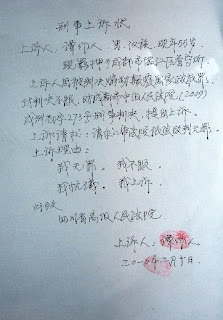 刑事上诉状
上诉人：谭作人 男. 汉族. 现年55岁.
现羁押于成都市温江区看守所
上诉人因被判决煽动颠覆国家政权罪
对判决不服, 对成都市中级人民法院(2009)
成刑初字273号刑事判决, 提出上诉.
上诉请求: 请求二审法院依法改判无罪.
上诉理由:
我无罪. 我不服
我抗议. 我上诉.
此致
四川省高级人民法院.
上诉人: 谭作人
二〇一〇年二月 日.